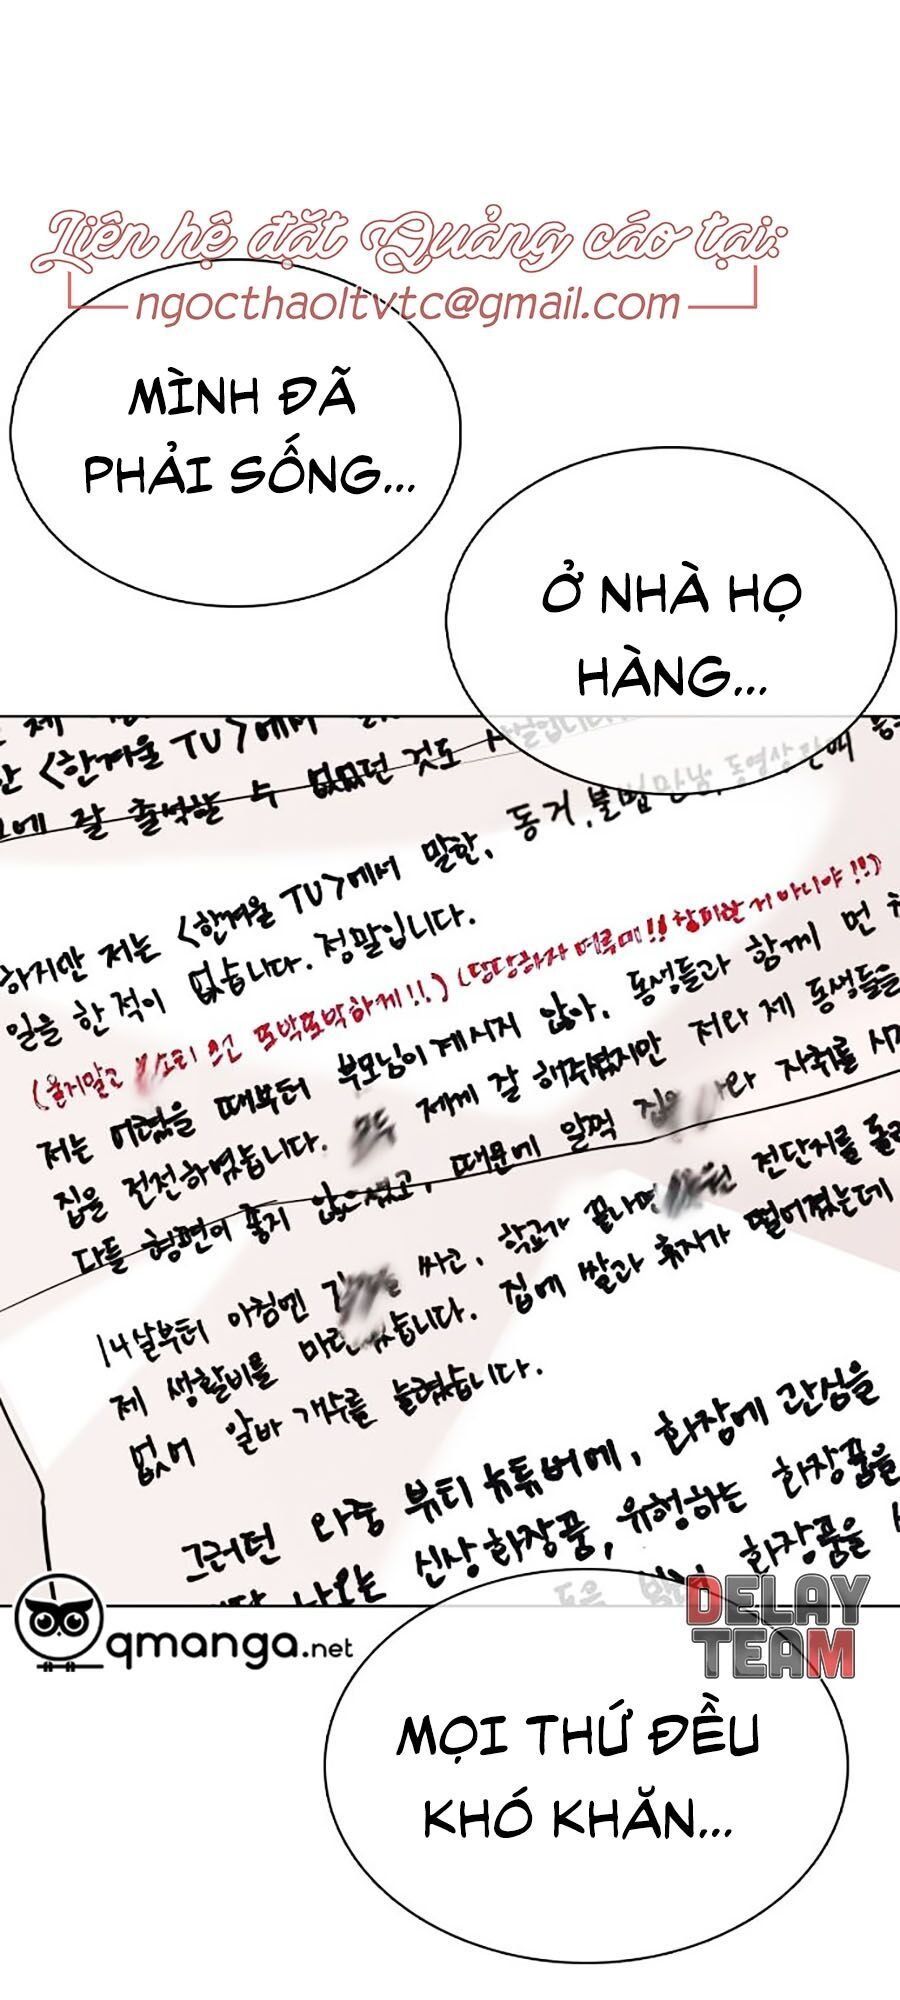 Liên hệ đặt Quảng cáo tại:
ngocthaoltvtc@gmail.com
MÌNH ĐÃ
PHẢI SỐNG...
Ở NHÀ HỌ
HÀNG...
<한겨울 TV>에서
잘 출석할 수 없었던 것도
하지만 저는 <한겨울 TV>에서 말한, 동거, 불법만남, 동영상
일을 한 적이 없습니다. 정말입니다.
(울지말고 또박또박하게!!) (당당하자 미루미!! 창피한 거 아니야!!)
저는 어렸을 때부터 부모님이 계시지 않아. 동생들과 함께 먼 친
집을 전전하였습니다. 모두 제게 잘 해주셨지만 저와 제 동생들을
다들 형편이 좋지 않으셨고, 때문에 일찍 자취를 시
14살부터 아침엔 싸고, 학교가 끝나면 전단지를 돌
제 생활비를 집에 쌀과 휴지가 떨어졌는데
없어 알바 개수를 늘렸습니다.
그러던 와중 뷰티 뉴튜버에, 화장에 관심을
나오는 신상화장품, 유행하는 화장품을
화장품을
qmanga.net
DELAY
TEAM
MỌI THỨ ĐỀU
KHÓ KHĂN...